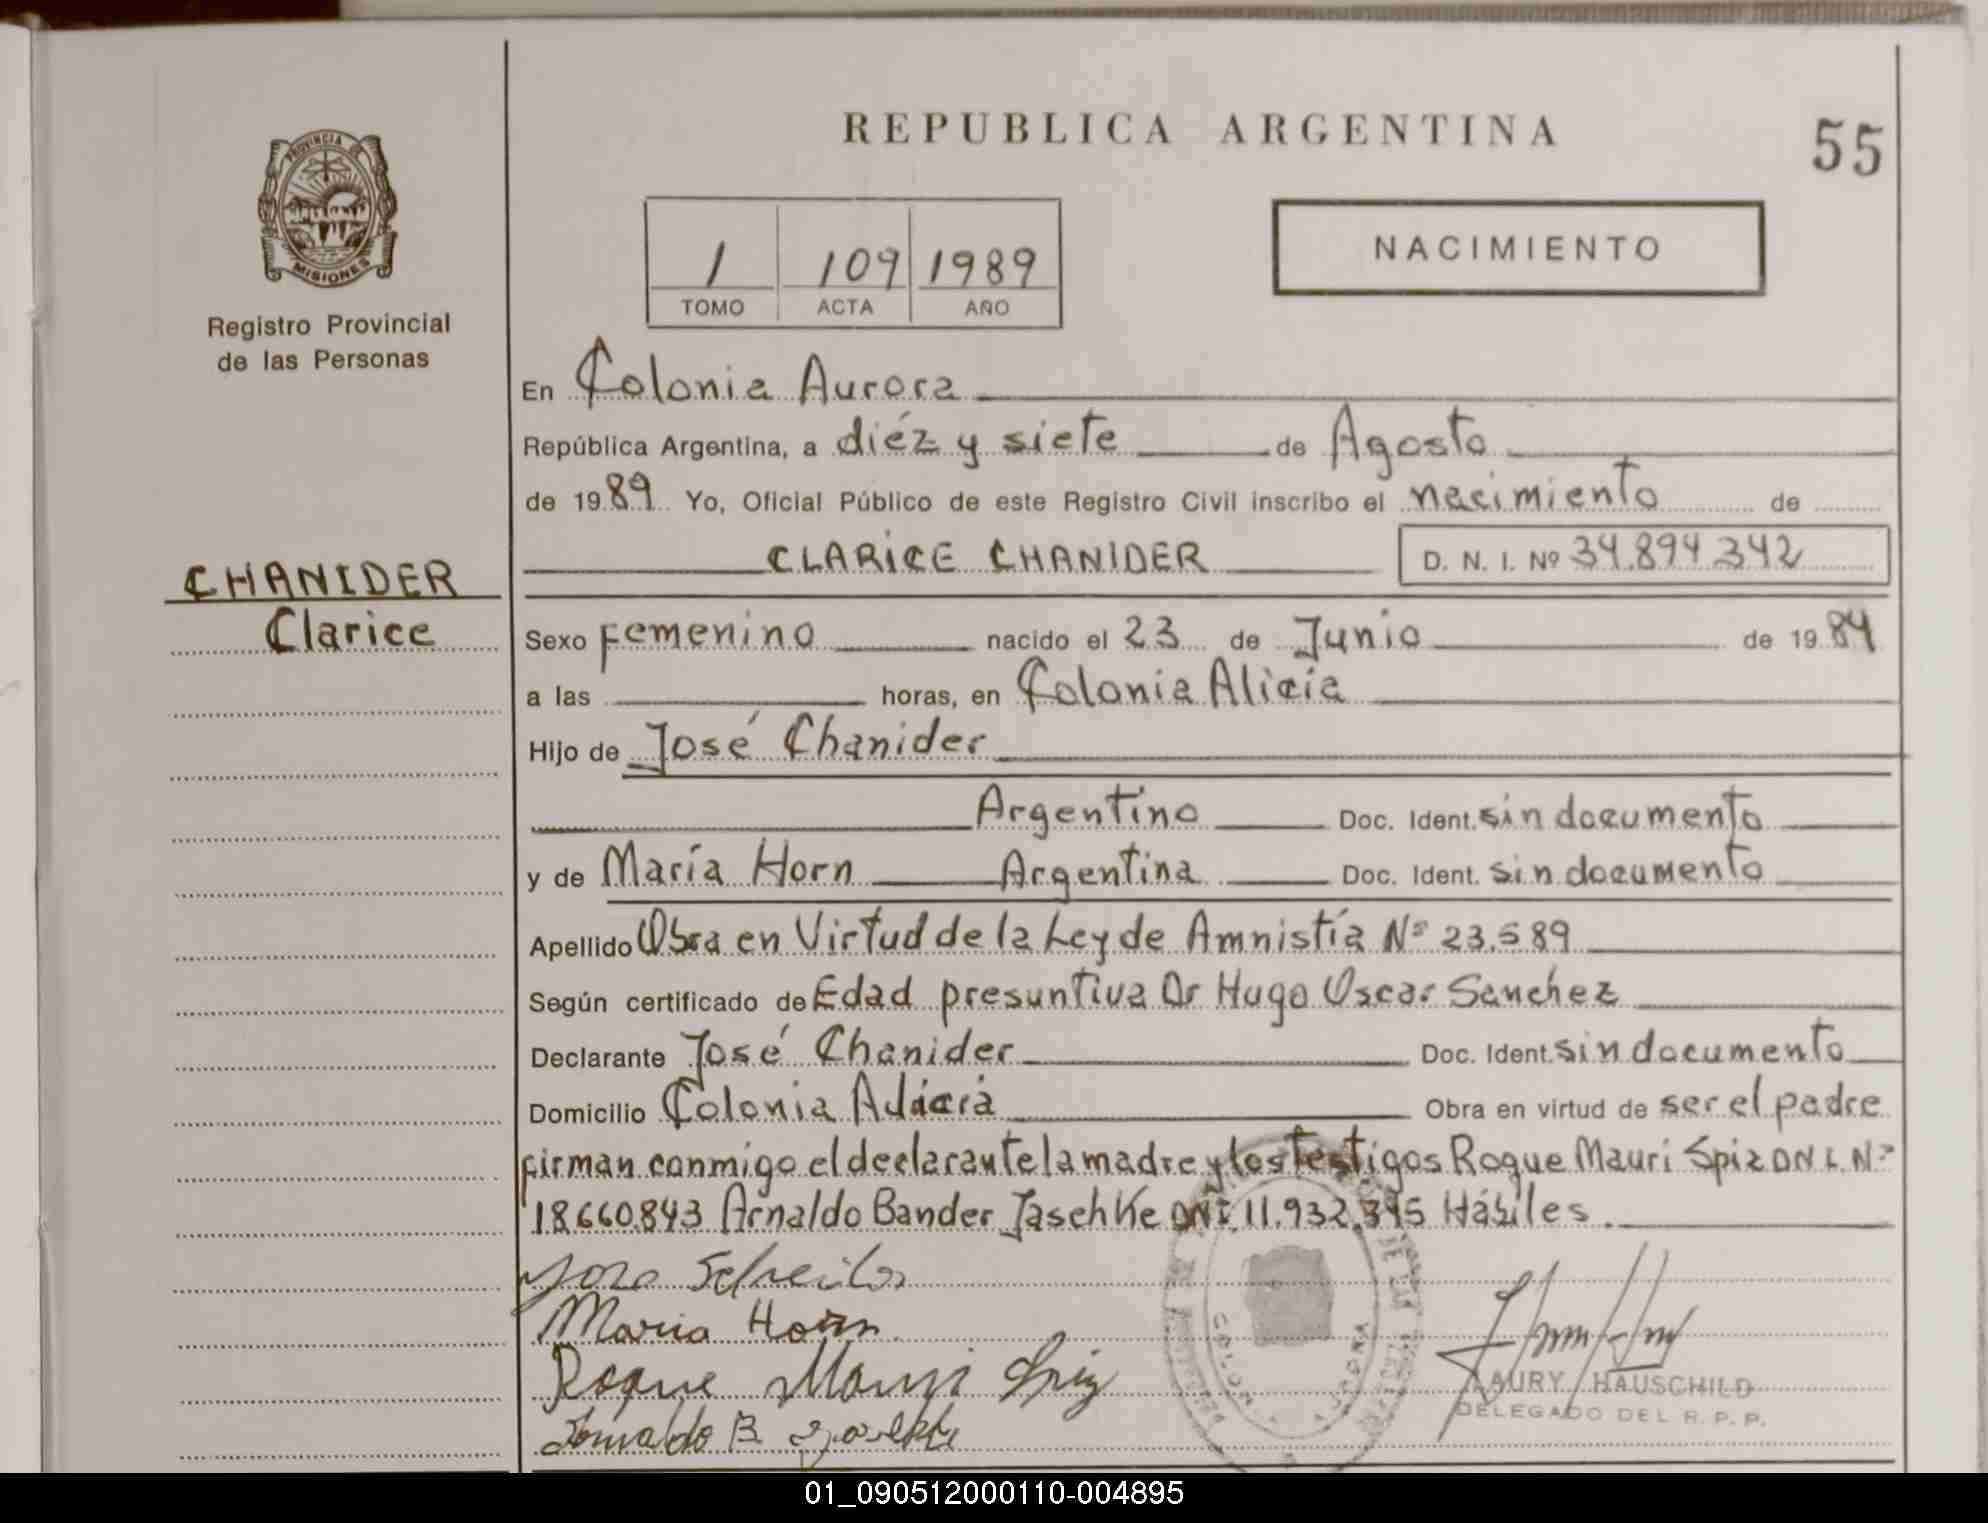 REPUBLICA ARGENTINA
55
PROVINCIA DE
MISIONES
Registro Provincial
de las Personas
1 109 1989
TOMO ACTA AÑO
NACIMIENTO
En Colonia Aurora
República Argentina, a diéz y siete de Agosto
de 1989 Yo, Oficial Público de este Registro Civil inscribo el nacimiento de
CLARICE CHANIDER D. N. I. Nº 34.894.342
CHANIDER
Clarice
Sexo Femenino nacido el 23 de Junio de 1984
a las horas, en Colonia Alicia
Hijo de José Chanider
Argentino Doc. Ident. sin documento
y de María Horn Argentina Doc. Ident. sin documento
Apellido Obra en Virtud de la Ley de Amnistía Nº 23.589
Según certificado de Edad presuntiva Dr Hugo Oscar Sanchez
Declarante José Chanider Doc. Ident. sin documento
Domicilio Colonia Obra en virtud de ser el padre
firman conmigo el declarante la madre y los Testigos Roque Mauri Spiz DNI. Nº
18.660.843 Arnaldo Bander Jaschke DNI. 11.932.345 Hábiles.
Maria Horn
Roque Mauri Spiz
COLONIA AURORA
LAURY HAUSCHILD
DELEGADO DEL R. P. P.
01_090512000110-004895